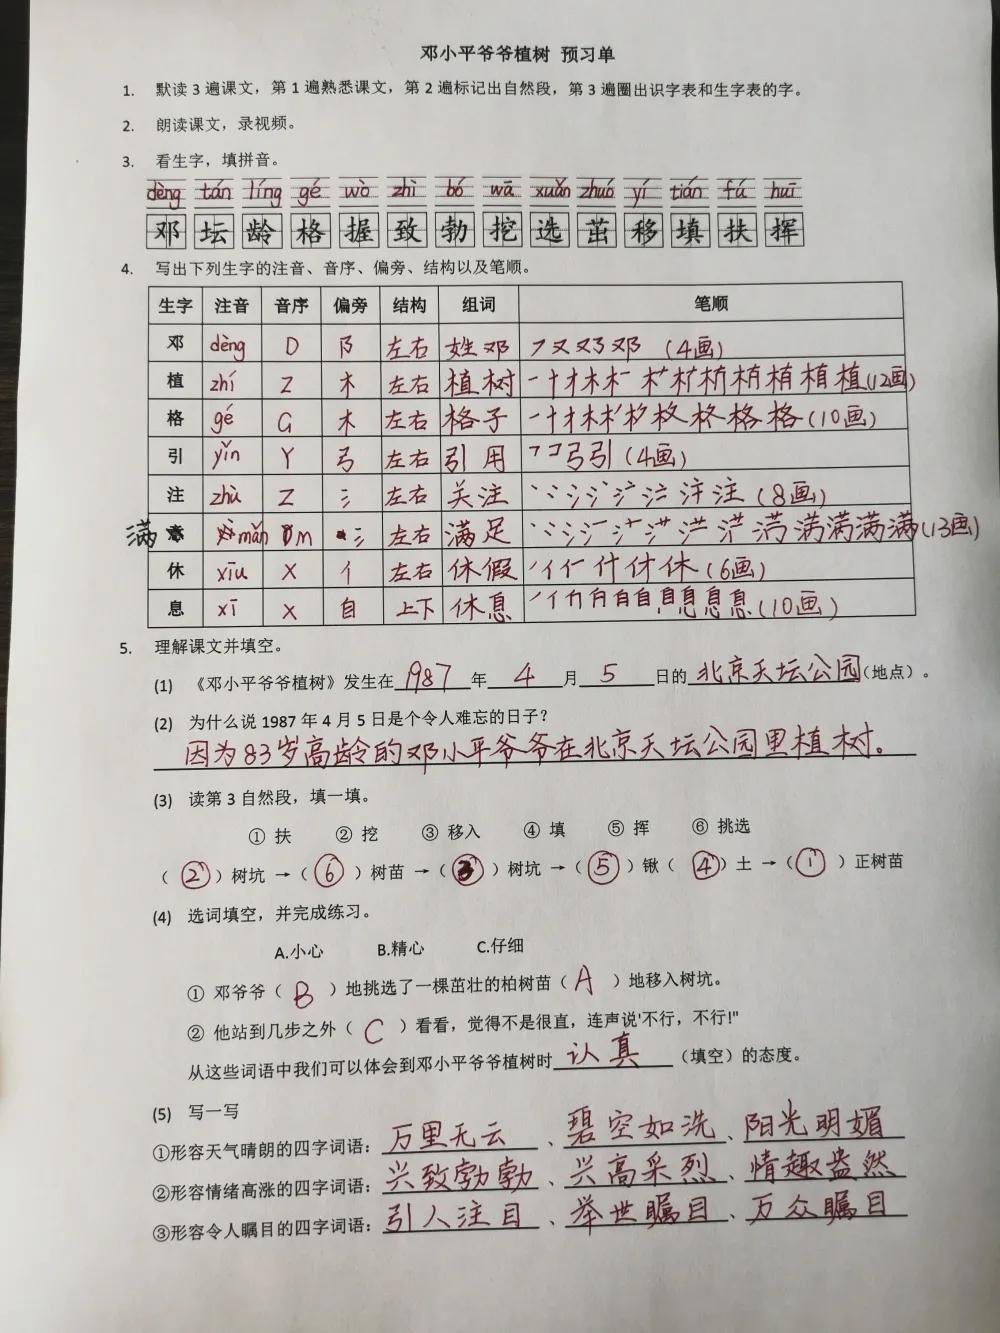 邓小平爷爷植树 预习单
1. 默读 3 遍课文，第 1 遍熟悉课文，第 2 遍标记出自然段，第 3 遍圈出识字表和生字表的字。
2. 朗读课文，录视频。
3. 看生字，填拼音。
dèng tán líng gé wò zhì bó wā xuǎn zhuó yí tián fú huī
邓 坛 龄 格 握 致 勃 挖 选 茁 移 填 扶 挥
4. 写出下列生字的注音、音序、偏旁、结构以及笔顺。
生字 注音 音序 偏旁 结构 组词 笔顺
邓 dèng D 阝 左右 姓邓 (4画)
植 zhí Z 木 左右 植树 (12画)
格 gé G 木 左右 格子 (10画)
引 yǐn Y 弓 左右 引用 (4画)
注 zhù Z 氵 左右 关注 (8画)
满 mǎn m 氵 左右 满足 (13画)
休 xīu X 亻 左右 休假 (6画)
息 xī X 自 上下 休息 (10画)
5. 理解课文并填空。
(1) 《邓小平爷爷植树》发生在 1987 年 4 月 5 日的 北京天坛公园 (地点)。
(2) 为什么说 1987 年 4 月 5 日是个令人难忘的日子？
因为83岁高龄的邓小平爷爷在北京天坛公园里植树。
(3) 读第 3 自然段，填一填。
① 扶 ② 挖 ③ 移入 ④ 填 ⑤ 挥 ⑥ 挑选
（ ② ）树坑 →（ ⑥ ）树苗 →（ ③ ）树坑 →（ ⑤ ）锹（ ④ ）土 →（ ① ）正树苗
(4) 选词填空，并完成练习。
A.小心 B.精心 C.仔细
① 邓爷爷（ B ）地挑选了一棵茁壮的柏树苗（ A ）地移入树坑。
② 他站到几步之外（ C ）看看，觉得不是很直，连声说'不行，不行!"
从这些词语中我们可以体会到邓小平爷爷植树时 认真 （填空）的态度。
(5) 写一写
①形容天气晴朗的四字词语: 万里无云 、 碧空如洗 、 阳光明媚
②形容情绪高涨的四字词语: 兴致勃勃 、 兴高采烈 、 情趣盎然
③形容令人瞩目的四字词语: 引人注目 、 举世瞩目 、 万众瞩目